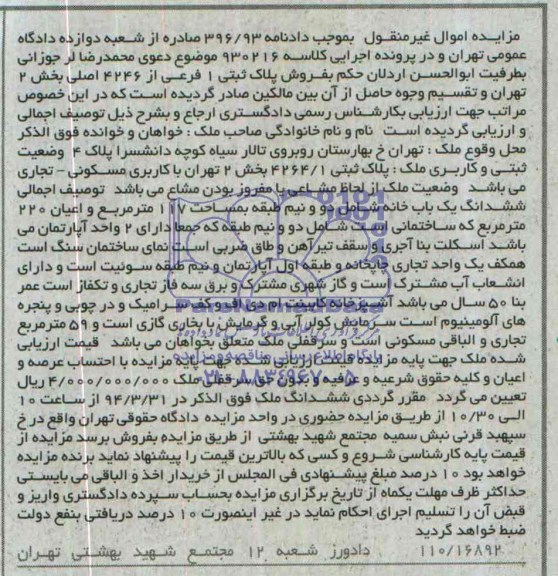 مزایده اموال غیرمنقول بموجب دادنامه ۳۹۶/۹۳ صادره از شعبه دوازده دادگاه
عمومی تهران و در پرونده اجرایی کلاسه ۹۳۰۲۱۶ موضوع دعوی محمدرضا لر جوزانی
بطرفیت ابوالحسن اردلان حکم بفروش پلاک ثبتی ۱ فرعی از ۴۲۴۶ اصلی بخش ۲
تهران و تقسیم وجوه حاصل از آن بین مالکین صادر گردیده است که در این خصوص
مراتب جهت ارزیابی بکارشناس رسمی دادگستری ارجاع و بشرح ذیل توصیف اجمالی
و ارزیابی گردیده است نام و نام خانوادگی صاحب ملک : خواهان و خوانده فوق الذکر
محل وقوع ملک : تهران خ بهارستان روبروی تالار سیاه کوچه دانشسرا پلاک ۴ وضعیت
ثبتی و کاربری ملک : پلاک ثبتی ۴۲۶۴/۱ بخش ۲ تهران با کاربری مسکونی - تجاری
می باشد وضعیت ملک از لحاظ مشاعی یا مفروز بودن مشاع می باشد توصیف اجمالی
ششدانگ یک باب خانه شامل دو و نیم طبقه بمساحت ۱۱۷ مترمربع و اعیان ۲۲۰
مترمربع که ساختمانی است شامل دو و نیم طبقه که جمعا دارای ۲ واحد آپارتمان می
باشد اسکلت بنا آجری و سقف تیرآهن و طاق ضربی است نمای ساختمان سنگ است
همکف یک واحد تجاری چاپخانه و طبقه اول آپارتمان و نیم طبقه سوئیت است و دارای
انشعاب آب مشترک است و گاز شهری مشترک و برق سه فاز تجاری و تکفاز است عمر
بنا ۵۰ سال می باشد آشپزخانه کابینت ام دی اف و کف سرامیک و در چوبی و پنجره
های آلومینیوم است سرمایش کولر آبی و گرمایش با بخاری گازی است و ۵۹ مترمربع
تجاری و الباقی مسکونی است و سرقفلی ملک متعلق بخواهان می باشد قیمت ارزیابی
شده ملک جهت پایه مزایده قیمت ارزیابی شده جهت پایه مزایده با احتساب عرصه و
اعیان و کلیه حقوق شرعیه و عرفیه و بدون حق سرقفلی ملک ۴/۰۰۰/۰۰۰/۰۰۰ ریال
تعیین می گردد مقرر گردید ششدانگ ملک فوق الذکر در ۹۴/۳/۳۱ از ساعت ۱۰
الی ۱۰/۳۰ از طریق مزایده حضوری در واحد مزایده دادگاه حقوقی تهران واقع در خ
سپهبد قرنی نبش سمیه مجتمع شهید بهشتی از طریق مزایده بفروش برسد مزایده از
قیمت پایه کارشناسی شروع و کسی که بالاترین قیمت را پیشنهاد نماید برنده مزایده
خواهد بود ۱۰ درصد مبلغ پیشنهادی فی المجلس از خریدار اخذ و الباقی می بایستی
حداکثر ظرف مهلت یکماه از تاریخ برگزاری مزایده بحساب سپرده دادگستری واریز و
قبض آن را تسلیم اجرای احکام نماید در غیر اینصورت ۱۰ درصد دریافتی بنفع دولت
ضبط خواهد گردید
۱۱۰/۱۶۸۹۲ دادورز شعبه ۱۲ مجتمع شهید بهشتی تهران